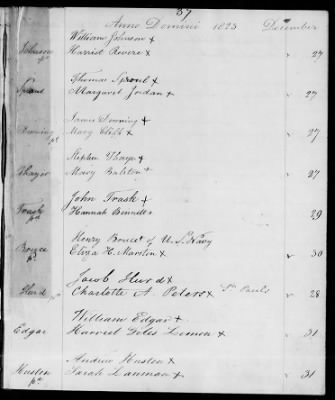 87
Anno Domini 1823 December
William Johnson +
Johnson Harriet Revere x 27
pd
Thomas Sproul +
Sproul Margaret Jordan x 27
James Downing +
Downing Mary Clift x 27
pd
Stephen Thayer +
Thayer Mary x 27
John Trask +
Trask Hannah Bennett x 29
pd
Henry Bruce + of U.S. Navy
Bruce Eliza H. x 30
pd
Jacob Hurd x
Hurd Charlotte A. Peters x St Pauls 28
William Edgar +
Edgar Harriet Giles x 31
Andrew Huston x
Huston Sarah Lanman x 31
pd